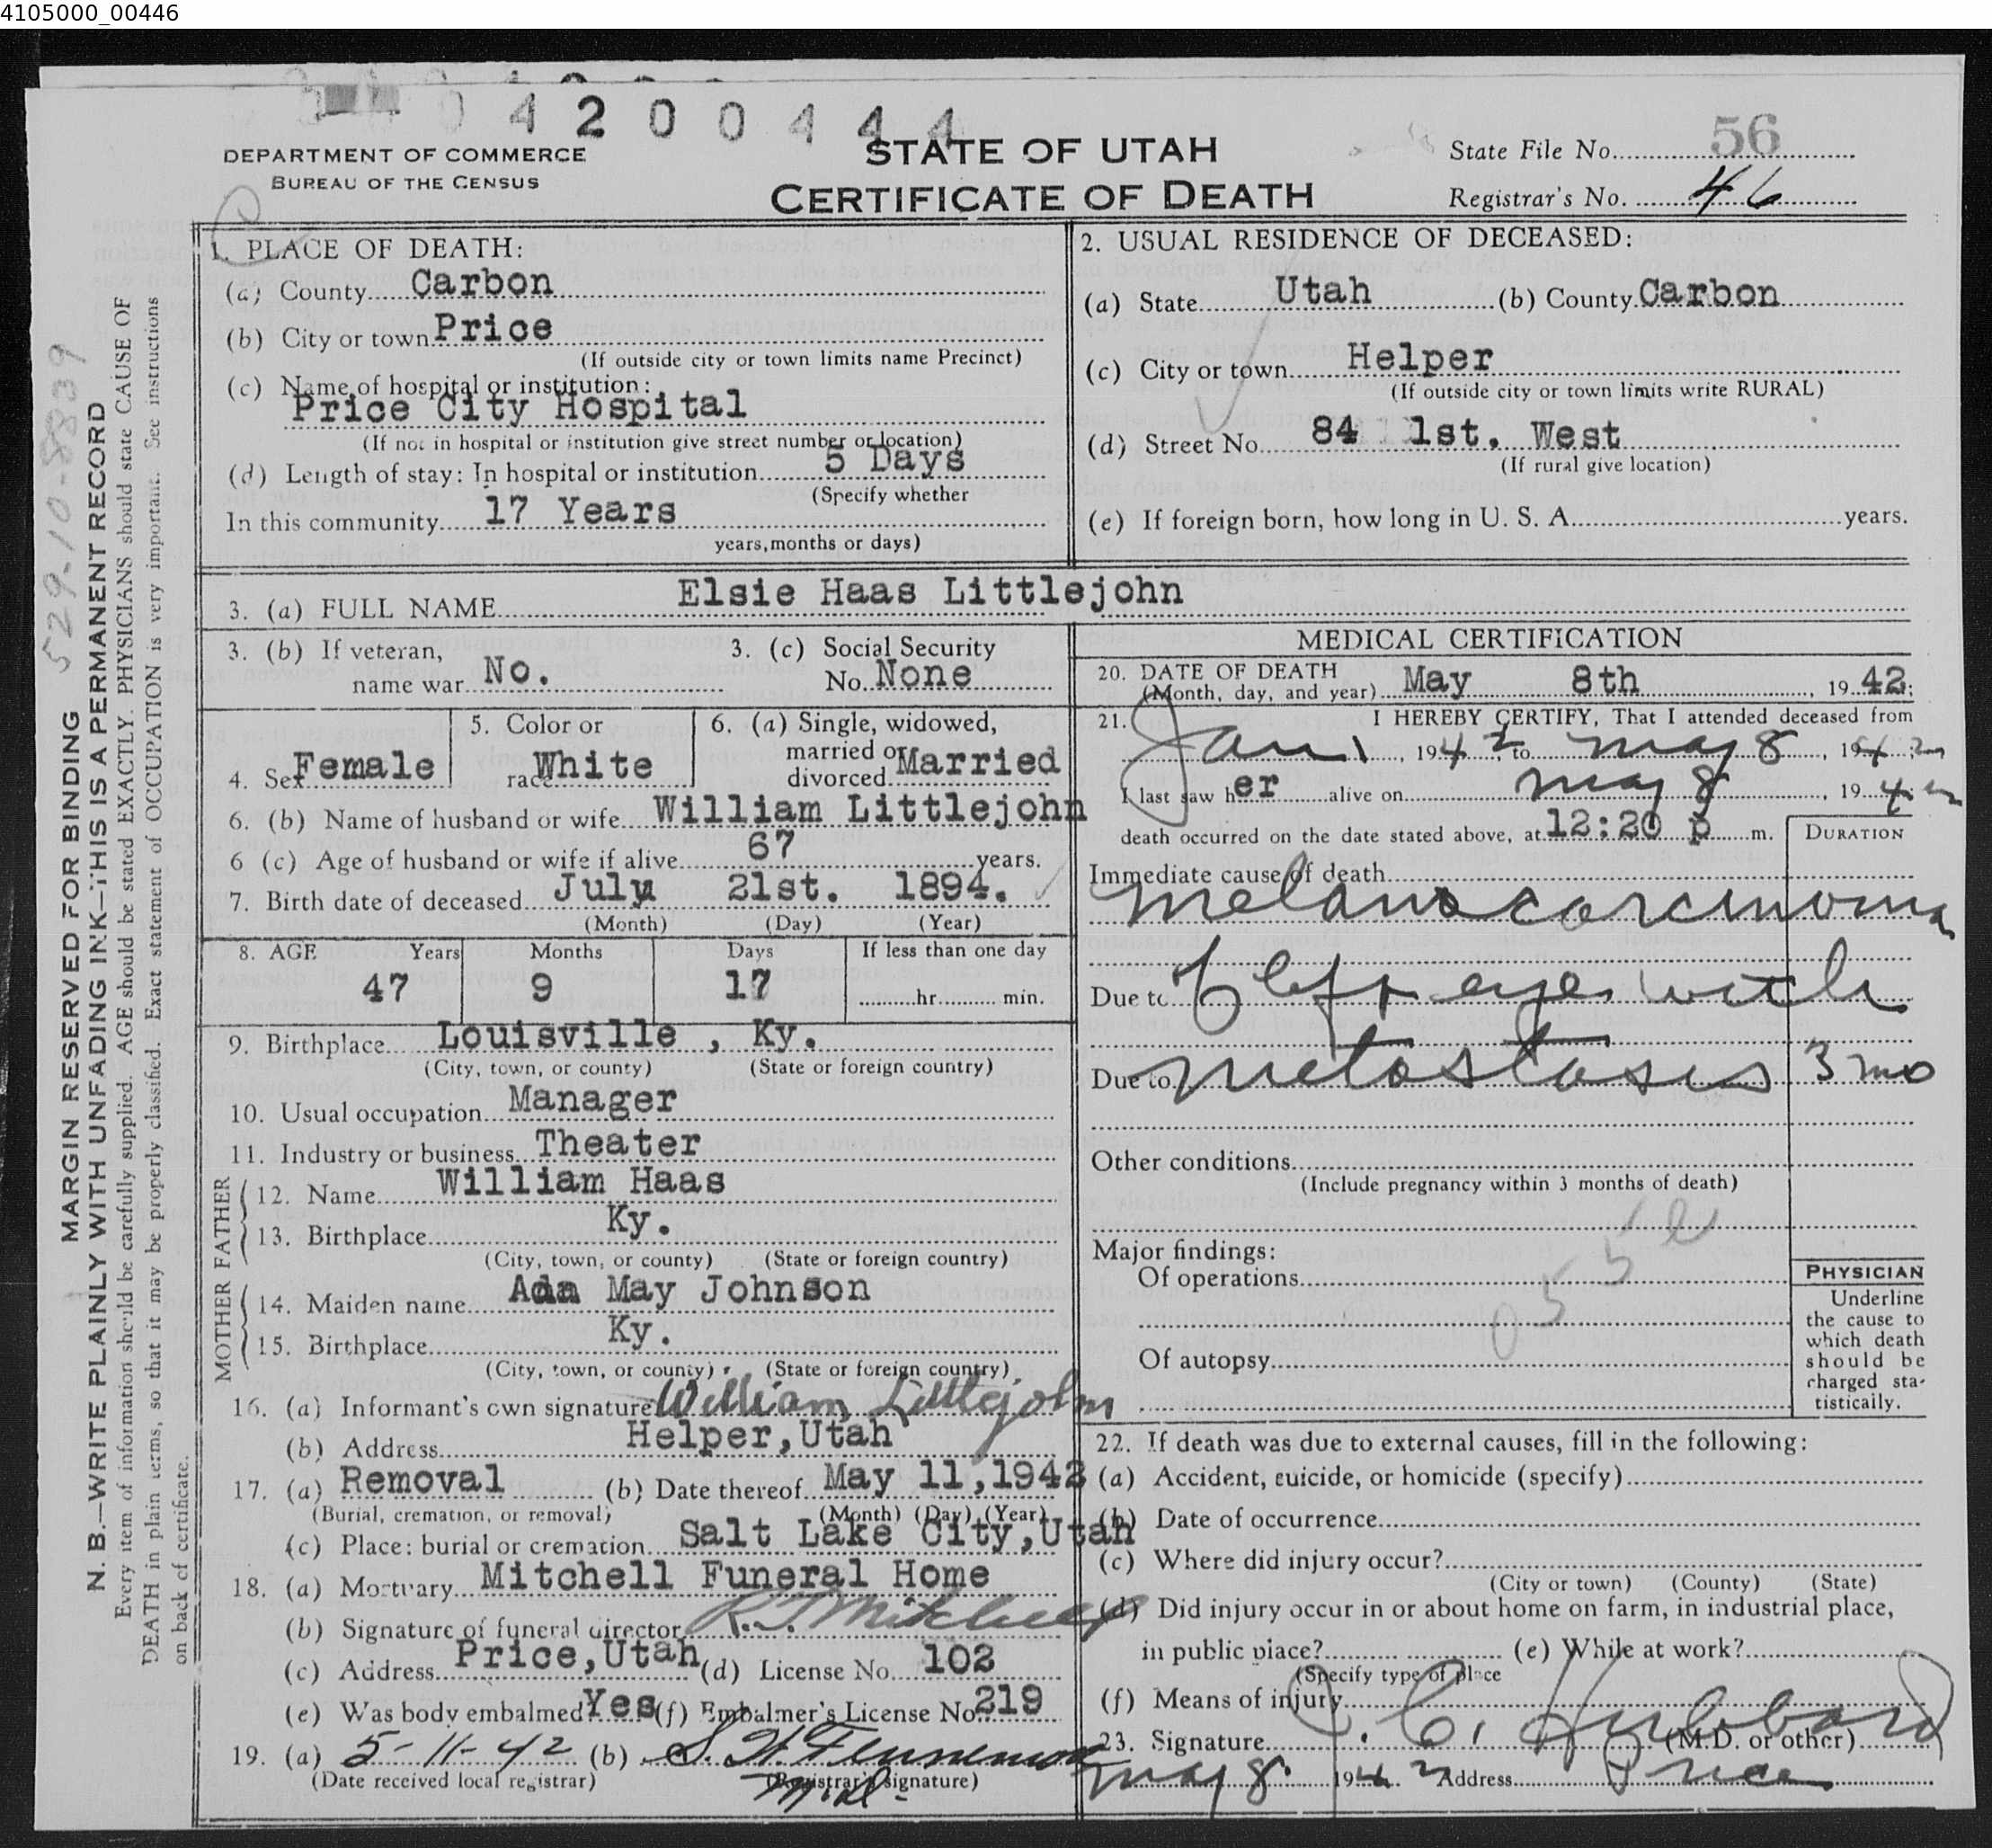 4105000_00446
4 2 0 0 4 4 4
DEPARTMENT OF COMMERCE
BUREAU OF THE CENSUS
STATE OF UTAH
CERTIFICATE OF DEATH
State File No. 56
Registrar's No. 46
MARGIN RESERVED FOR BINDING
N. B.—WRITE PLAINLY WITH UNFADING INK—THIS IS A PERMANENT RECORD
Every item of information should be carefully supplied. AGE should be stated EXACTLY. PHYSICIANS should state CAUSE OF
DEATH in plain terms, so that it may be properly classified. Exact statement of OCCUPATION is very important. See instructions
on back of certificate.
1. PLACE OF DEATH:
(a) County Carbon
(b) City or town Price
(If outside city or town limits name Precinct)
(c) Name of hospital or institution:
Price City Hospital
(If not in hospital or institution give street number or location)
(d) Length of stay: In hospital or institution 5 Days
(Specify whether
In this community 17 Years
years, months or days)
2. USUAL RESIDENCE OF DECEASED:
(a) State Utah (b) County Carbon
(c) City or town Helper
(If outside city or town limits write RURAL)
(d) Street No. 84 1st. West
(If rural give location)
(e) If foreign born, how long in U. S. A. years.
3. (a) FULL NAME Elsie Haas Littlejohn
3. (b) If veteran, name war No.
3. (c) Social Security No. None
4. Sex Female
5. Color or race White
6. (a) Single, widowed, married or divorced Married
6. (b) Name of husband or wife William Littlejohn
6 (c) Age of husband or wife if alive 67 years.
7. Birth date of deceased July 21st. 1894.
(Month) (Day) (Year)
8. AGE Years Months Days If less than one day
47 9 17 hr. min.
9. Birthplace Louisville, Ky.
(City, town, or county) (State or foreign country)
10. Usual occupation Manager
11. Industry or business Theater
FATHER
12. Name William Haas
13. Birthplace Ky.
(City, town, or county) (State or foreign country)
MOTHER
14. Maiden name Ada May Johnson
15. Birthplace Ky.
(City, town, or county) (State or foreign country)
16. (a) Informant's own signature William Littlejohn
(b) Address Helper, Utah
17. (a) Removal (b) Date thereof May 11, 1942
(Burial, cremation, or removal) (Month) (Day) (Year)
(c) Place: burial or cremation Salt Lake City, Utah
18. (a) Mortuary Mitchell Funeral Home
(b) Signature of funeral director R. J. Mitchell
(c) Address Price, Utah (d) License No. 102
(e) Was body embalmed? Yes (f) Embalmer's License No. 219
19. (a) 5-11-42 (b)
(Date received local registrar) (Registrar's signature)
MEDICAL CERTIFICATION
20. DATE OF DEATH
(Month, day, and year) May 8th, 1942;
21. I HEREBY CERTIFY, That I attended deceased from
Jan 1, 1942 to May 8, 1942
I last saw her alive on May 8, 194
death occurred on the date stated above, at 12:20 p m.
DURATION
Immediate cause of death
melano carcinoma
Due to left eye with
Due to metastasis 3 mo
Other conditions
(Include pregnancy within 3 months of death)
Major findings:
Of operations
Of autopsy
PHYSICIAN
Underline
the cause to
which death
should be
charged sta-
tistically.
22. If death was due to external causes, fill in the following:
(a) Accident, suicide, or homicide (specify)
(b) Date of occurrence
(c) Where did injury occur?
(City or town) (County) (State)
(d) Did injury occur in or about home on farm, in industrial place,
in public place? (e) While at work?
(Specify type of place
(f) Means of injury
23. Signature C. Hubbard (M.D. or other)
May 8 1942 Address Price